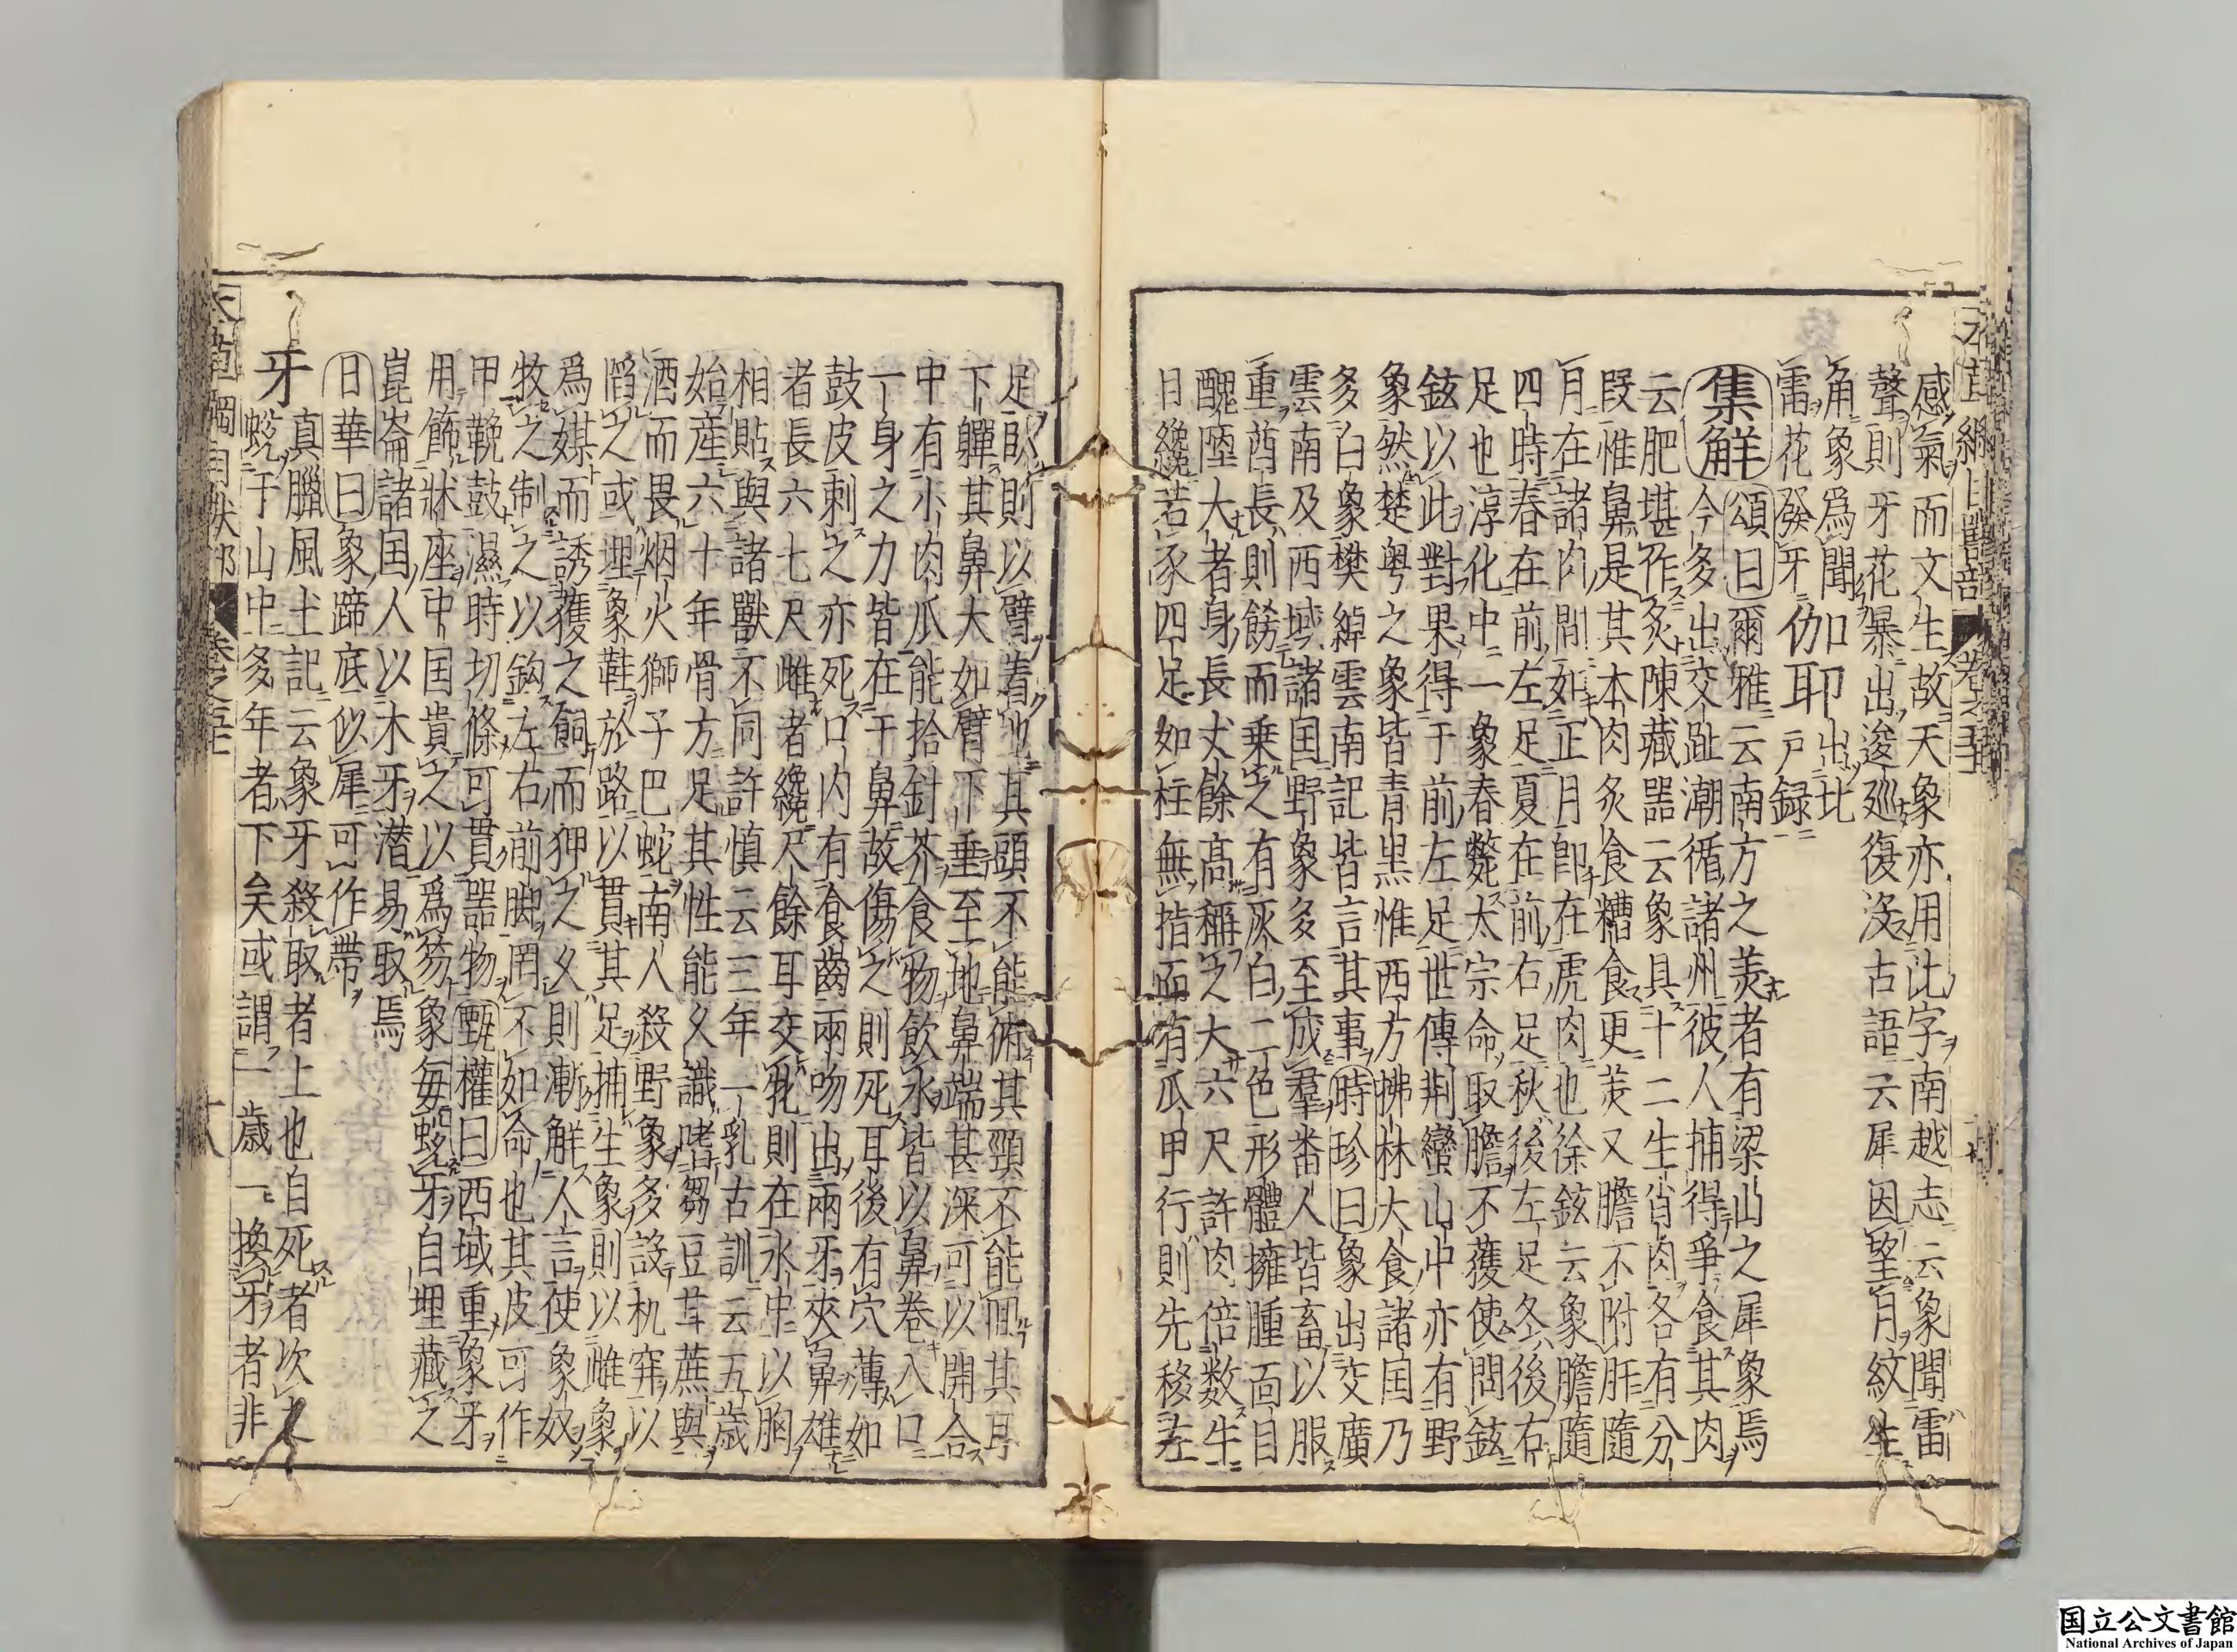 感氣而文生故天象亦用比字南越志云象聞雷
聲則牙花暴出逡巡復沒古語云犀因望月紋生
角象爲聞
雷花發牙
伽耶出北
戸録
集解頌曰爾雅云南方之美者有梁山之犀象焉
今多出交趾潮循諸州彼人捕得爭食其肉
云肥堪作炙陳藏器云象具十二生肖肉各有分
段惟鼻是其本肉炙食糟食更美又膽不附肝隨
月在諸肉間如正月卽在虎肉也徐鉉云象膽隨
四時春在前左足夏在前右足秋後左足冬後右
足也淳化中一象春斃太宗命取膽不獲使問鉉
鉉以此對果得于前左足世傳荆蠻山中亦有野
象然楚粤之象皆青黒惟西方拂林大食諸国乃
多白象樊綽雲南記皆言其事時珍曰象出交廣
雲南及西域諸国野象多至成羣番人皆畜以服
重酋長則餝而乗之有灰白二色形體擁腫面目
醜陋大者身長丈餘高稱之大六尺許肉倍数牛
目纔若豕四足如柱無指而有爪甲行則先移左
足卧則以臂着地其頭不能俯其頸不能回其耳
下軃其鼻大如臂下垂至地鼻端甚深可以開合
中有小肉爪能拾針芥食物飲水皆以鼻卷入口
一身之力皆在于鼻故傷之則死耳後有穴薄如
鼓皮刺之亦死口内有食齒兩吻出兩牙夾鼻雄
者長六七尺雌者纔尺餘耳交牝則在水中以胸
相貼與諸獸不同許慎云三年一乳古訓云五歳
始産六十年骨方足其性能久識嗜芻豆甘蔗與
酒而畏烟火獅子巴蛇南人殺野象多設机穽以
陷之或埋象鞋於路以貫其足捕生象則以雌象
爲媒而誘獲之飼而狎之久則漸解人言使象奴
牧之制之以鈎左右前脚罔不如命也其皮可作
甲鞔鼓濕時切條可貫器物甄權曰西域重象牙
用飾牀座中国貴之以爲笏象毎蛻牙自埋藏之
崑崙諸国人以木牙潜易取焉
日華曰象蹄底似犀可作帶
牙
真臘風土記云象牙殺取者上也自死者次之
蛻于山中多年者下矣或謂一歳一換牙者非